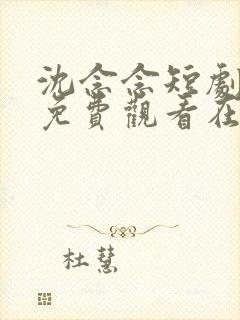 沈念念短劇
免費觀看在
杜慧